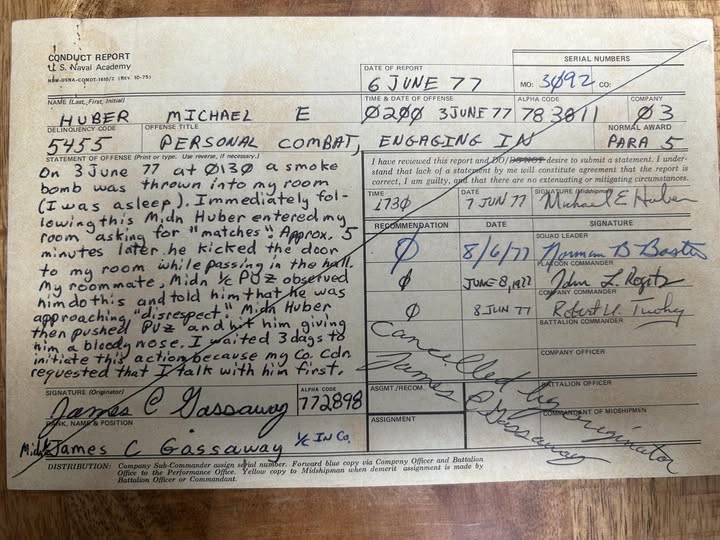 CONDUCT REPORT
U. S. Naval Academy
NDW-USNA-COMDT-1610/2 (REV. 10-75)
DATE OF REPORT
6 JUNE 77
SERIAL NUMBERS
MO: 3092 CO:
NAME (Last, First, Initial)
HUBER MICHAEL E
TIME & DATE OF OFFENSE
0200 3 JUNE 77
ALPHA CODE
783811
COMPANY
03
DELINQUENCY CODE
5455
OFFENSE TITLE
PERSONAL COMBAT, ENGAGING IN
NORMAL AWARD
PARA 5
STATEMENT OF OFFENSE (Print or type. Use reverse, if necessary.)
On 3 June 77 at 0130 a smoke
bomb was thrown into my room
(I was asleep). Immediately fol-
lowing this Midn Huber entered my
room asking for "matches". Approx. 5
minutes later he kicked the door
to my room while passing in the hall.
My roommate, Midn 1/c PUZ observed
him do this and told him that he was
approaching "disrespect". Midn Huber
then pushed PUZ and hit him giving
him a bloody nose. I waited 3 days to
initiate this action because my Co. Cdr.
requested that I talk with him first.
I have reviewed this report and DO/DO NOT desire to submit a statement. I under-
stand that lack of a statement by me will constitute agreement that the report is
correct, I am guilty, and that there are no extenuating or mitigating circumstances.
TIME
1730
DATE
7 JUN 77
SIGNATURE (Midshipman)
Michael E Huber
RECOMMENDATION
DATE
SIGNATURE
SQUAD LEADER
0 8/6/77 Norman B
PLATOON COMMANDER
0 JUNE 8, 1977 John L.
COMPANY COMMANDER
0 8 JUN 77 Robert
BATTALION COMMANDER
COMPANY OFFICER
ASGMT./RECOM.
BATTALION OFFICER
ASSIGNMENT
COMMANDANT OF MIDSHIPMEN
Cancelled by originator
James C Gassaway
SIGNATURE (Originator)
James C Gassaway
ALPHA CODE
772898
RANK, NAME & POSITION
Midn James C Gassaway 1/c IN Co.
DISTRIBUTION: Company Sub-Commander assign serial number. Forward blue copy via Company Officer and Battalion
Office to the Performance Office. Yellow copy to Midshipman when demerit assignment is made by
Battalion Officer or Commandant.